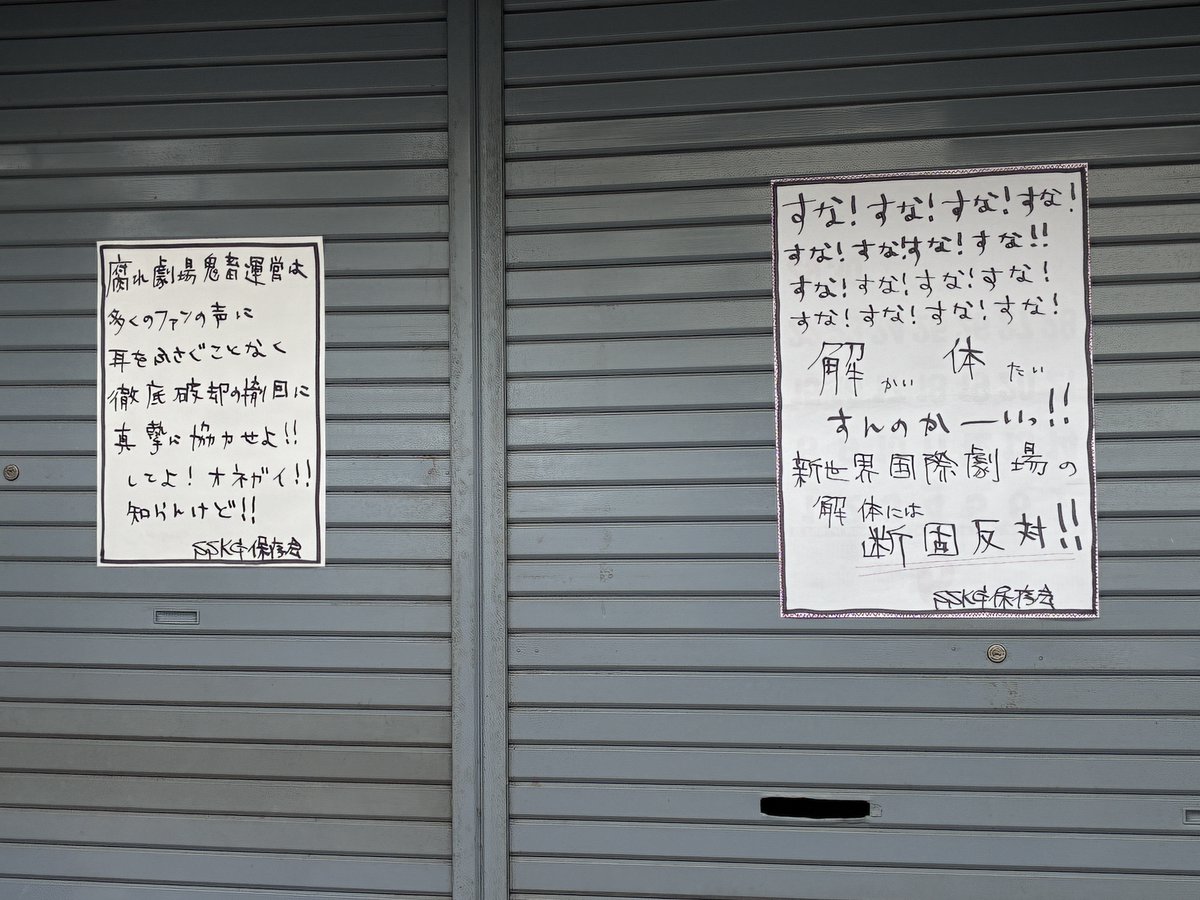 腐れ劇場鬼畜運営は
多くのファンの声に
耳をふさぐことなく
徹底破却の撤回に
真摯に協力せよ!!
してよ!オネガイ!!
知らんけど!!
SSKG保存会
すな!すな!すな!すな!
すな!すな!すな!すな!!
すな!すな!すな!すな!
すな!すな!すな!すな!
解かい 体たい
すんのかーいっ!!
新世界国際劇場の
解体には
断固反対!!
SSKG保存会